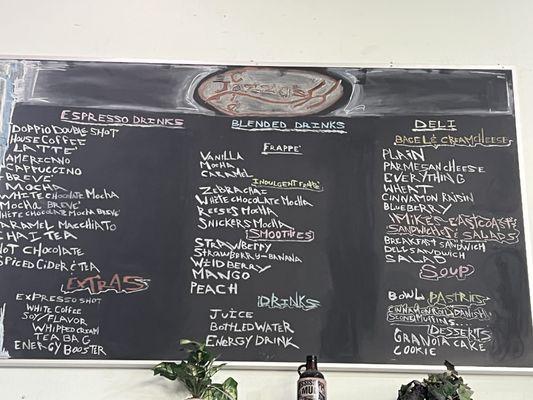 ESPRESSO DRINKS
DOPPIO DOUBLE SHOT
HOUSE COFFEE
LATTE'
AMERICANO
CAPPUCCINO
BREVE'
MOCHA
WHITE CHOCOLATE MOCHA
MOCHA BREVE'
WHITE CHOCOLATE MOCHA BREVE'
CARAMEL MACCHIATO
CHAI TEA
HOT CHOCOLATE
SPICED CIDER & TEA
EXTRAS
EXPRESSO SHOT
WHITE COFFEE
SOY FLAVOR
WHIPPED CREAM
TEA BAG
ENERGY BOOSTER
BLENDED DRINKS
FRAPPE'
VANILLA
MOCHA
CARAMEL
INDULGENT FRAPPE'
ZEBRACHAE
WHITE CHOCOLATE MOCHA
REESES MOCHA
SNICKERS MOCHA
SMOOTHIES
STRAWBERRY
STRAWBERRY-BANANA
WILDBERRY
MANGO
PEACH
DRINKS
JUICE
BOTTLED WATER
ENERGY DRINK
DELI
BAGEL & CREAM CHEESE
PLAIN
PARMESAN CHEESE
EVERYTHING
WHEAT
CINNAMON RAISIN
BLUEBERRY
MIKE'S EAST COAST
SANDWICHES & SALADS
BREAKFAST SANDWICH
DELI SANDWICH
SALAD
SOUP
BOWL
PASTRIES
CINNAMON ROLL DANISH
SCONE MUFFINS....
DESSERTS
GRANOLA CAKE
COOKIE